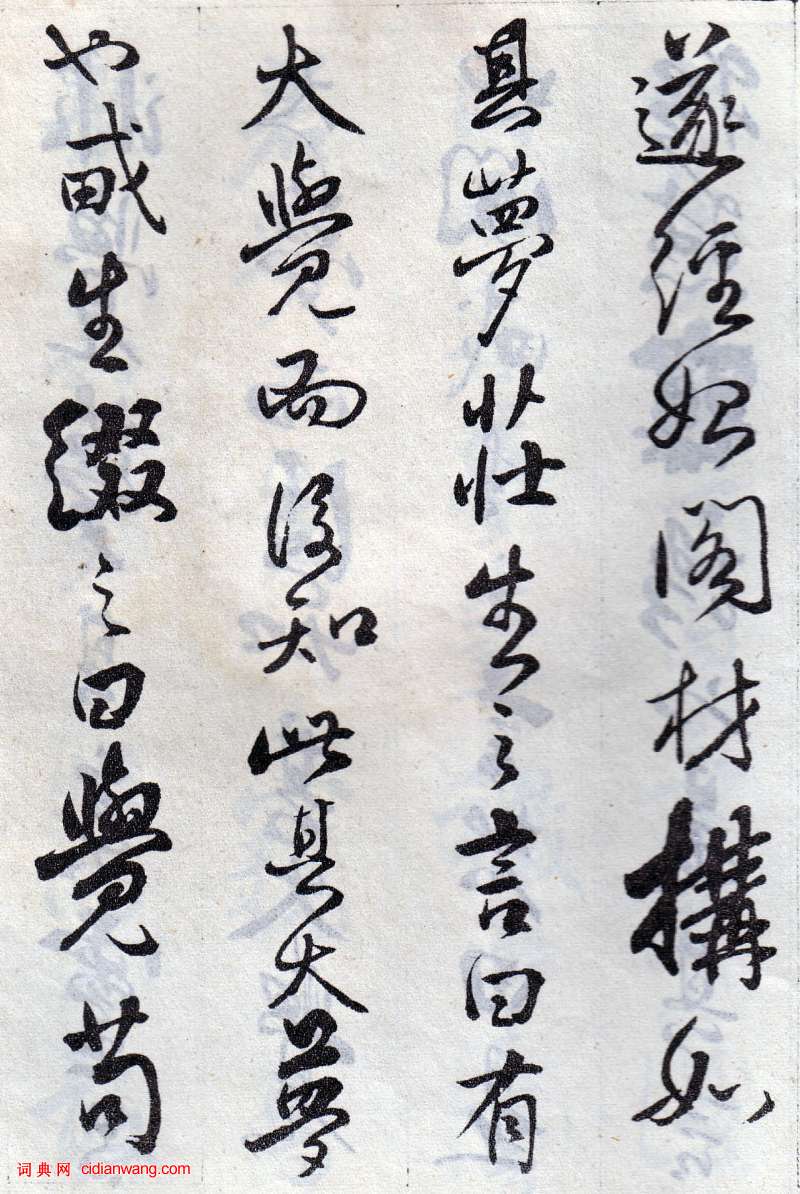 遂經始閣材構如
其夢莊生之言曰有
大覺而後知此其大夢
也生綴之曰覺苟
词典网 cidianwang.com